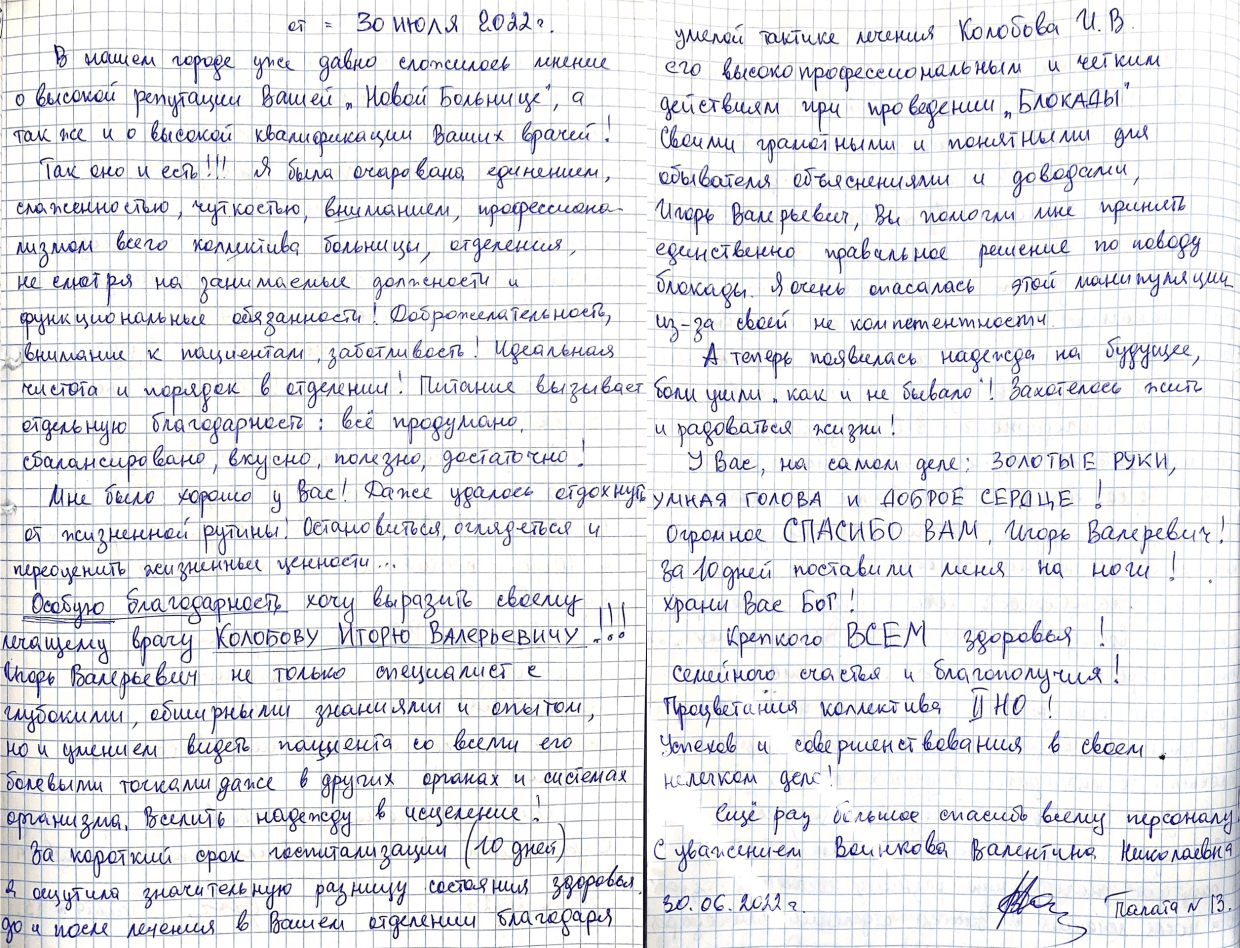 от = 30 июля 2022 г.
В нашем городе уже давно сложилось мнение
о высокой репутации Вашей „Новой Больнице", а
так же и о высокой квалификации Ваших врачей!
Так оно и есть!!! Я была очарована единением,
слаженностью, чуткостью, вниманием, профессиона-
лизмом всего коллектива больницы, отделения,
не смотря на занимаемые должности и
функциональные обязанности! Доброжелательность,
внимание к пациентам, заботливость! Идеальная
чистота и порядок в отделении! Питание вызывает
отдельную благодарность: всё продумано,
сбалансировано, вкусно, полезно, достаточно!
Мне было хорошо у Вас! Даже удалось отдохнуть
от жизненной рутины! Остановиться, оглядеться и
переоценить жизненные ценности...
Особую благодарность хочу выразить своему
лечащему врачу КОЛОБОВУ ИГОРЮ ВАЛЕРЬЕВИЧУ!!!
Игорь Валерьевич не только специалист с
глубокими, обширными знаниями и опытом,
но и умением видеть пациента со всеми его
болевыми точками даже в других органах и системах
организма. Вселить надежду в исцеление!
За короткий срок госпитализации (10 дней)
я ощутила значительную разницу состояния здоровья
до и после лечения в Вашем отделении благодаря
умелой тактике лечения Колобова И.В.
его высокопрофессиональным и чётким
действиям при проведении „БЛОКАДЫ"
Своими грамотными и понятными для
обывателя объяснениями и доводами,
Игорь Валерьевич, Вы помогли мне принять
единственно правильное решение по поводу
блокады. Я очень опасалась этой манипуляции
из-за своей не компетентности.
А теперь появилась надежда на будущее,
боли ушли „как и не бывало"! Захотелось жить
и радоваться жизни!
У Вас, на самом деле: ЗОЛОТЫЕ РУКИ,
УМНАЯ ГОЛОВА и ДОБРОЕ СЕРДЦЕ!
Огромное СПАСИБО ВАМ, Игорь Валеревич!
За 10 дней поставили меня на ноги!
Храни Вас Бог!
Крепкого ВСЕМ здоровья!
Семейного счастья и благополучия!
Процветания коллектива II НО!
Успехов и совершенствования в своем
нелегком деле!
Ещё раз большое спасибо всему персоналу
С уважением Воинкова Валентина Николаевна
30.06.2022 г. Палата N 13.